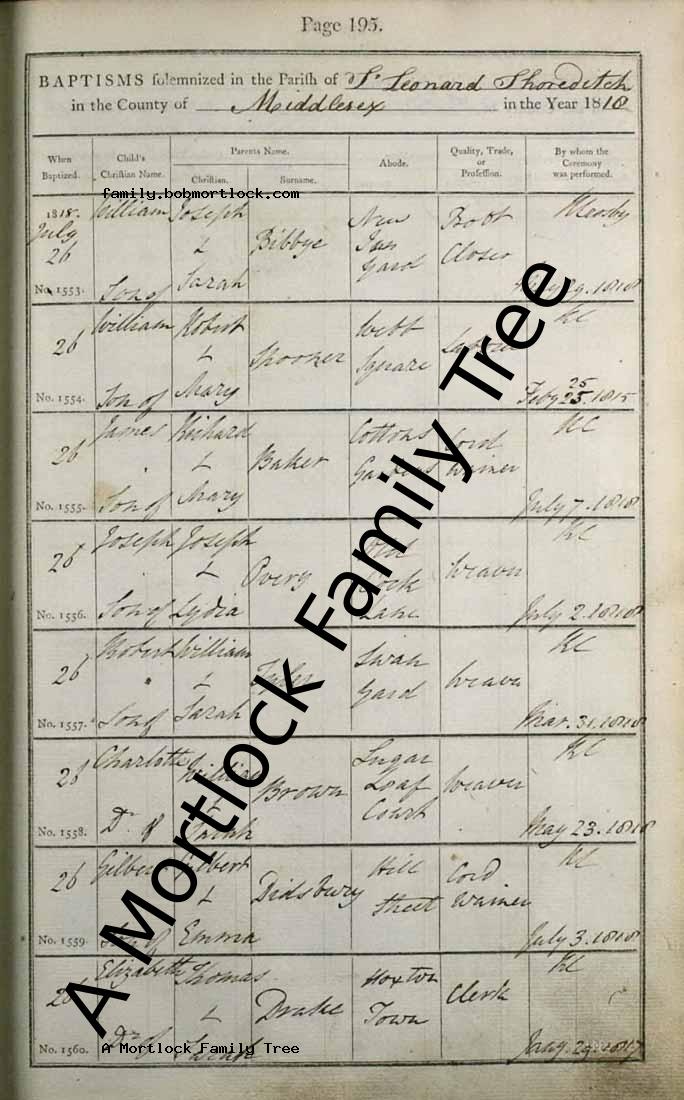 Page 195.
BAPTISMS solemnized in the Parish of St Leonard Shoreditch
in the County of Middlesex in the Year 1818
When Baptized. Child's Christian Name. Parents Name. Abode. Quality, Trade, or Profession. By whom the Ceremony was performed.
Christian. Surname.
family.bobmortlock.com
1818. William Joseph New Boot
July & Bibbye Inn Closer
26 Yard
No. 1553. Son of Sarah 1818
William Robert Webb KC
26 & Spooner Square
No. 1554. Son of Mary Feby 25. 1815
25
James Richard Cottons Cord KC
26 & Baker Gardens Wainer
No. 1555. Son of Mary July 7. 1818
Joseph Joseph KC
26 & Overy Weaver
No. 1556. Son of Lydia Lane July 2. 1818
Robert William Swan KC
26 & Yard Weaver
No. 1557. Son of Sarah Mar. 31. 1818
Charlotte William Sugar KC
26 & Brown Loaf Weaver
Court
No. 1558. Dr of May 23. 1818
Gilbert Gilbert Hill Cord KC
26 & Didsbury Street Wainer
No. 1559. Son of Emma July 3. 1818
Elizabeth Thomas Hoxton Clerk KC
26 & Drake Town
No. 1560. Dr of Jany. 29. 1817
A Mortlock Family Tree
A Mortlock Family Tree